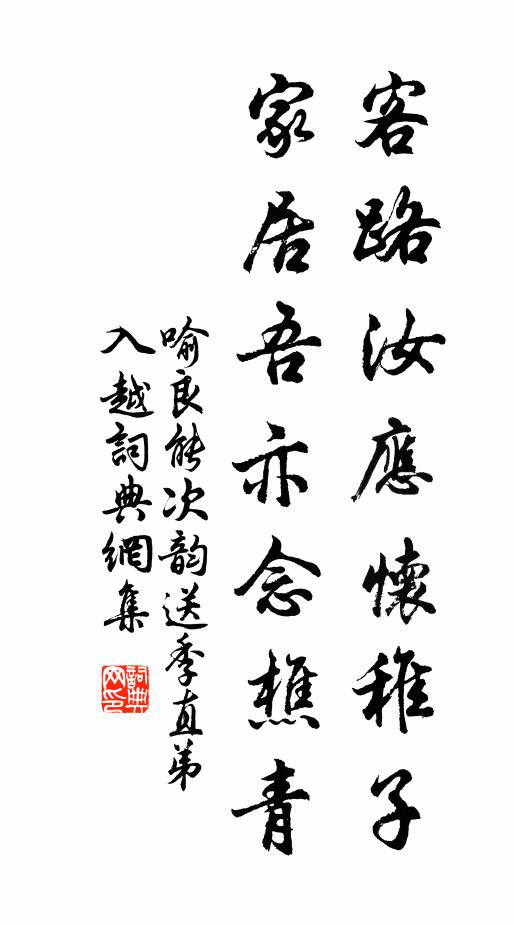 客路汝應懷稚子
家居吾亦念樵青
喻良能次韵送季直弟
入越詞典網集
詞典
网印